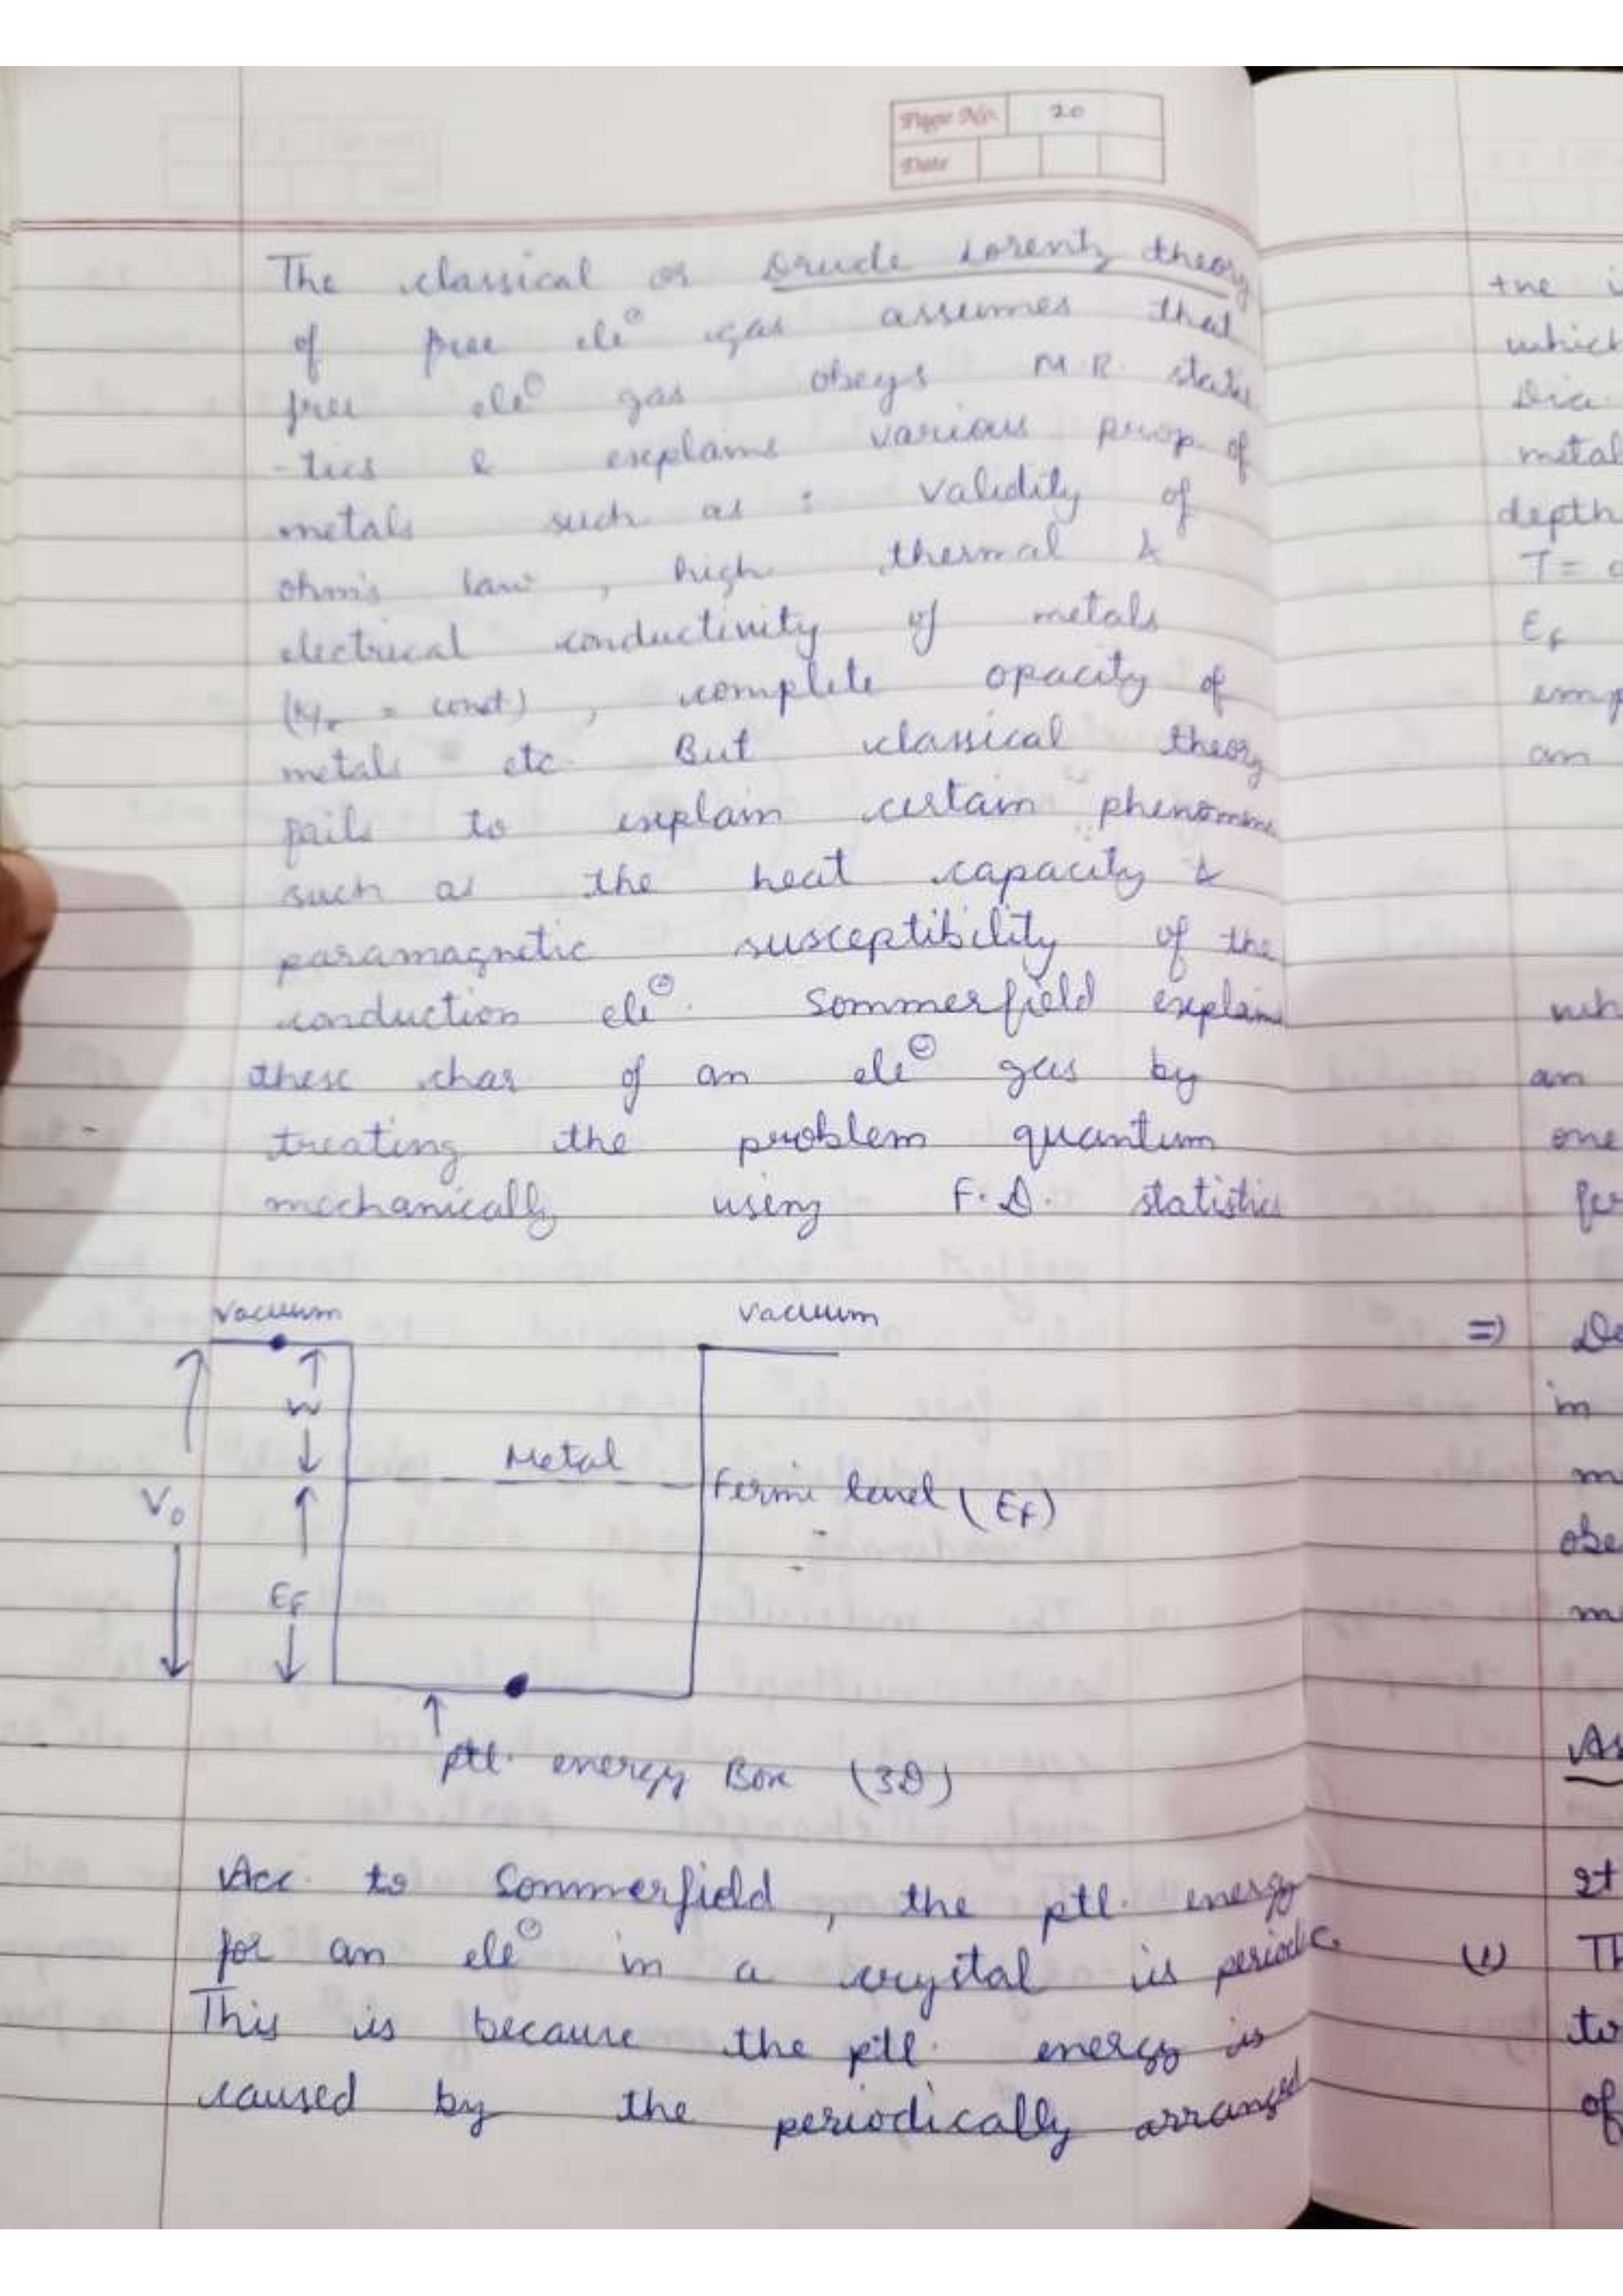 Page No. 20
Date
The classical or Drude Lorentz theory
of free ele⊖ gas assumes that
free ele⊖ gas obeys M.B. statis
-tics & explains various prop. of
metals such as : validity of
ohm's law , high thermal &
electrical conductivity of metals
(K/σ = const) , complete opacity of
metals etc. But classical theory
fails to explain certain phenomena
such as the heat capacity &
paramagnetic susceptibility of the
conduction ele⊖. Sommerfield explains
these char of an ele⊖ gas by
treating the problem quantum
mechanically using F.D. statistics
Vacuum Vacuum
W
Metal
V₀ Fermi level (EF)
EF
↑
ptl. energy Box (3D)
Acc. to Sommerfield , the ptl. energy
for an ele⊖ in a crystal is periodic.
This is because the ptl. energy is
caused by the periodically arranged
which
Dia.
metal
depth
T =
EF
am
an
one
=)
in
(1) Th
to
of